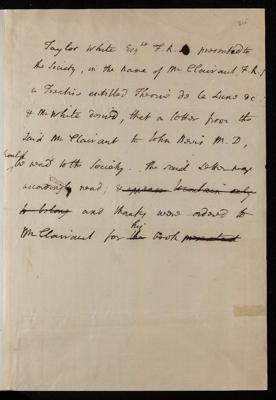 Taylor White Esq.re F.R.S. presented to
the Society, in the name of Mr Clairaut, F.R.S
a Treatise entitled Theorie de la Lune &c
& Mr White desired, that a Letter from the
said Mr Clairaut to John Bevis M.D,
might be read to the Society. The said Letter was
accordingly read; & appears to contain only
to belong and thanks were ordered to
Mr Clairaut for the his book presented